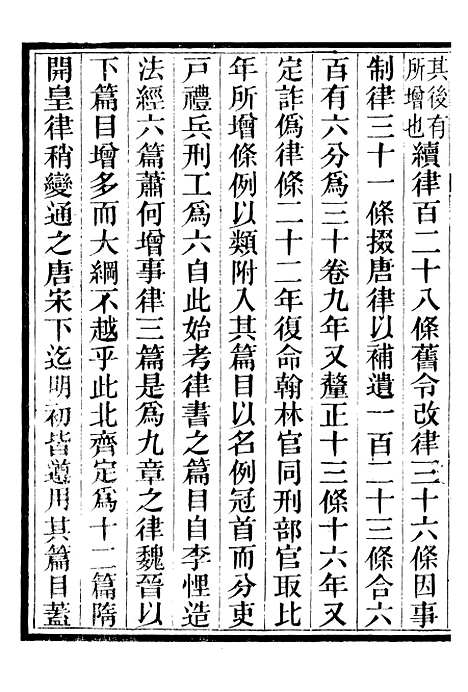 其後有
所增也
續律百二十八條舊令改律三十六條因事
制律三十一條掇唐律以補遺一百二十三條合六
百有六分爲三十卷九年又釐正十三條十六年又
定詐僞律條二十二年復命翰林官同刑部官取比
年所增條例以類附入其篇目以名例冠首而分吏
戸禮兵刑工爲六自此始考律書之篇目自李悝造
法經六篇蕭何增事律三篇是爲九章之律魏晉以
下篇目增多而大綱不越乎此北齊定爲十二篇隋
開皇律稍變通之唐宋下迄明初皆遵用其篇目蓋